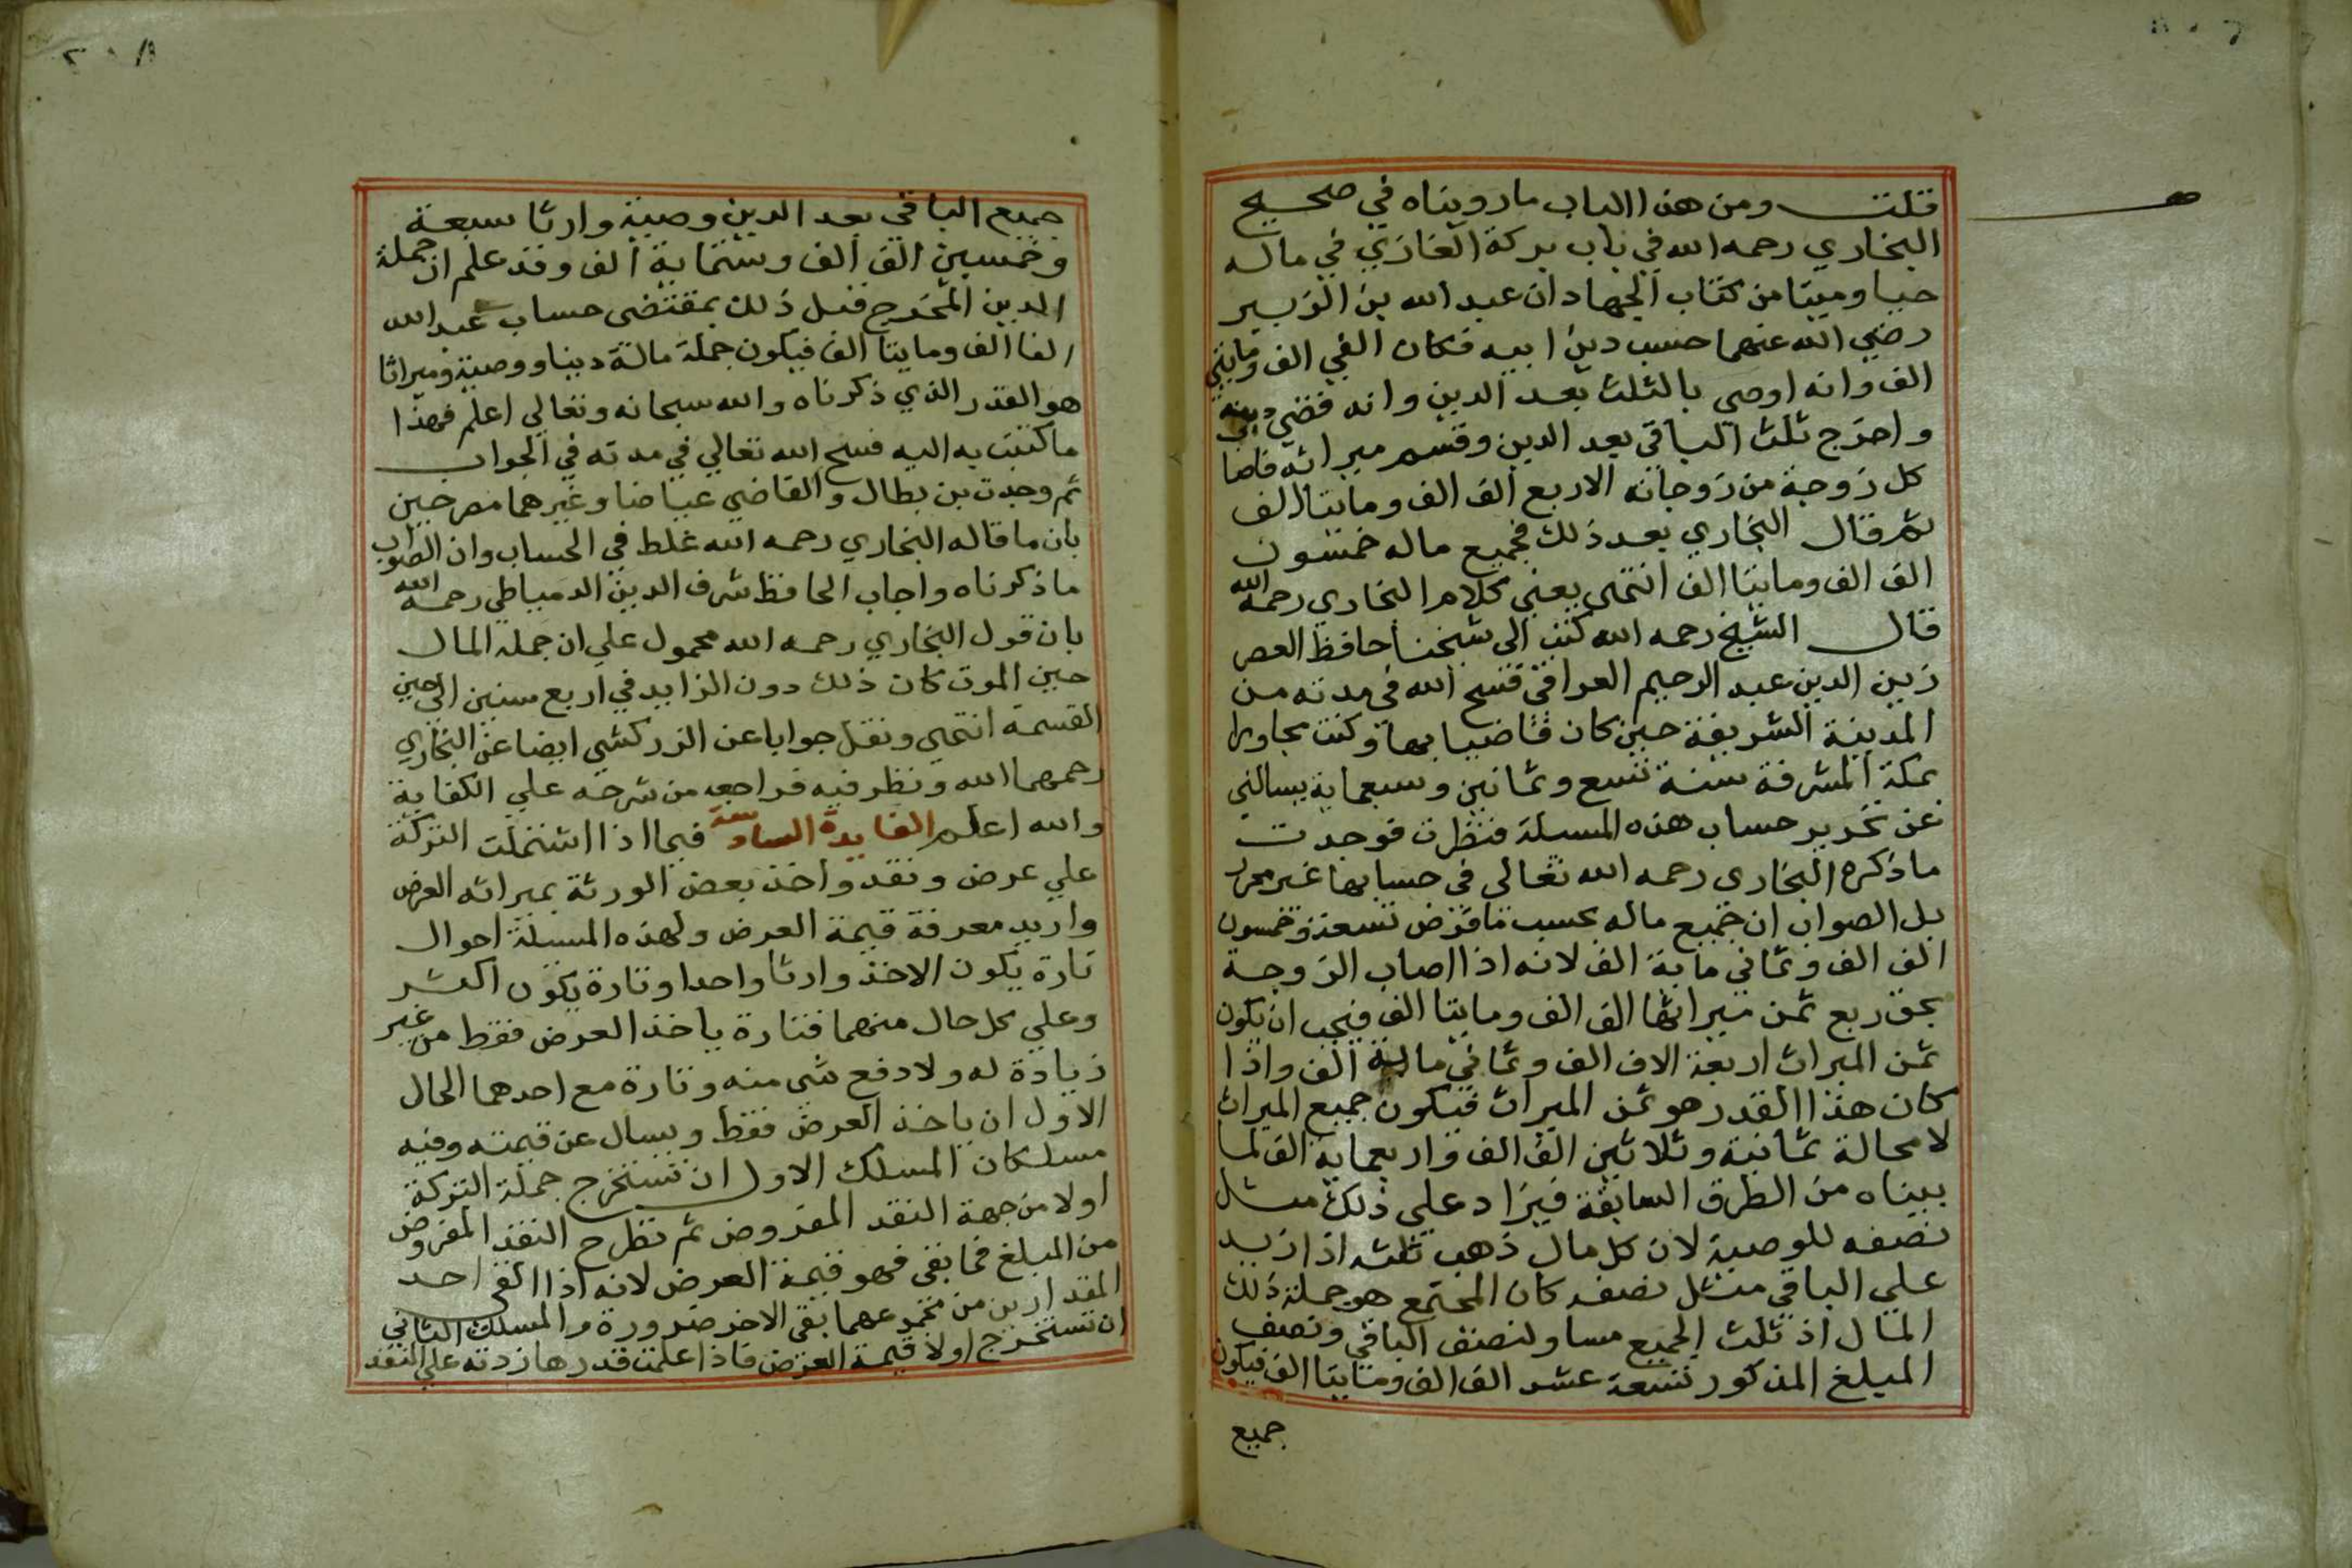 قلت ومن هذا الباب ما رويناه في صحيح
البخاري رحمه الله في باب بركة الغازي في ماله
حيا وميتا من كتاب الجهاد ان عبد الله بن الزبير
رضي الله عنهما حسب دين ابيه فكان الفي الف ومايتي
الف وانه اوصي بالثلث بعد الدين وانه قضي دينه
واخرج ثلث الباقي بعد الدين وقسم ميراثه فاصا
كل زوجة من زوجاته الاربع الف الف ومايتا الف
ثم قال البخاري بعد ذلك فجميع ماله خمسون
الف الف ومايتا الف انتهي يعني كلام البخاري رحمه الله
قال الشيخ رحمه الله كتب الى شيخنا حافظ العصر
زين الدين عبد الرحيم العراقي فسح الله في مدته من
المدينة الشريفة حين كان قاضيا بها وكنت مجاورا
بمكة المشرفة سنة تسع وثمانين وسبعماية يسالني
عن تحرير حساب هذه المسلة فنظرت فوجدت
ما ذكره البخاري رحمه الله تعالى في حسابها غير محرر
بل الصواب ان جميع ماله بحسب ما فرض تسعة وخمسون
الف الف وثماني ماية الف لانه اذا اصاب الزوجة
بحق ربع ثمن ميراثها الف الف ومايتا الف فيجب ان يكون
ثمن الميراث اربعة الاف الف وثماني ماية الف واذا
كان هذا القدر هو ثمن الميراث فيكون جميع الميراث
لا محالة ثمانية وثلاثين الف الف واربعماية الف لما
بيناه من الطرق السابقة فيزاد علي ذلك مثل
نصفه للوصية لان كل مال ذهب ثلثه اذا زيد
علي الباقي مثل نصفه كان المجتمع هو جملة ذلك
المال اذ ثلث الجميع مساو لنصف الباقي ونصف
المبلغ المذكور تسعة عشر الف الف ومايتا الف فيكون
جميع
جميع الباقي بعد الدين وصية وارثا سبعة
وخمسين الف الف وستماية الف وقد علم ان جملة
الدين المخرج قبل ذلك بمقتضى حساب عبد الله
الفا الف ومايتا الف فيكون جملة ماله دينا ووصية وميراثا
هو القدر الذي ذكرناه والله سبحانه وتعالي اعلم فهذا
ما كتبت به اليه فسح الله تعالي في مدته في الجواب
ثم وجدت بن بطال والقاضي عياضا وغيرهما مصرحين
بان ما قاله البخاري رحمه الله غلط في الحساب وان الصواب
ما ذكرناه واجاب الحافظ شرف الدين الدمياطي رحمه الله
بان قول البخاري رحمه الله محمول علي ان جملة المال
حين الموت كان ذلك دون الزايد في اربع سنين الى حين
القسمة انتهي ونقل جوابا عن الزركشي ايضا عن البخاري
رحمهما الله ونظر فيه فراجعه من شرحه علي الكفاية
والله اعلم الفايدة السابعة فيما اذا اشتملت التركة
علي عرض ونقد واخذ بعض الورثة بميراثه العرض
واريد معرفة قيمة العرض ولهذه المسلة احوال
تارة يكون الاخذ وارثا واحدا وتارة يكون اكثر
وعلي كل حال منهما فتارة ياخذ العرض فقط من غير
زيادة له ولا دفع شي منه وتارة مع احدهما الحال
الاول ان ياخذ العرض فقط ويسال عن قيمته وفيه
مسلكان المسلك الاول ان تستخرج جملة التركة
اولا من جهة النقد المفروض ثم تطرح النقد المفروض
من المبلغ فما بقي فهو قيمة العرض لانه اذا القي احد
المقدارين من مجموعهما بقي الاخر ضرورة والمسلك الثاني
ان تستخرج اولا قيمة العرض فاذا علمت قدرها زدته علي النقد